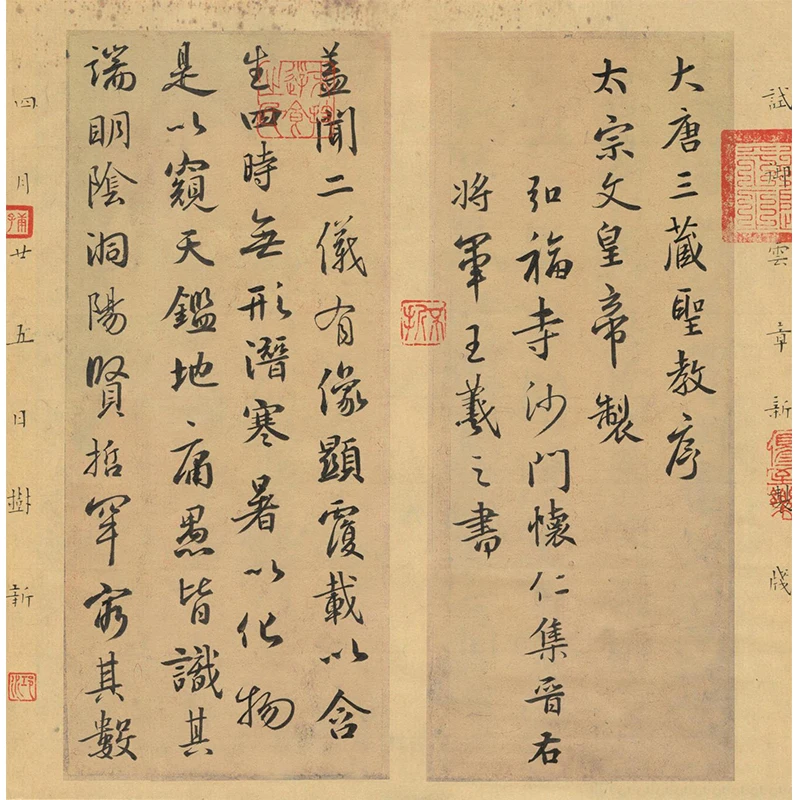 試卿雲章新製牋
大唐三藏聖教序
太宗文皇帝製
弘福寺沙門懷仁集晉右
將軍王羲之書
不折
蓋聞二儀有像顯覆載以含
生四時無形潛寒暑以化物
是以窺天鑑地、庸愚皆識其
端明陰洞陽賢哲罕窮其數
四月廿五日樹新